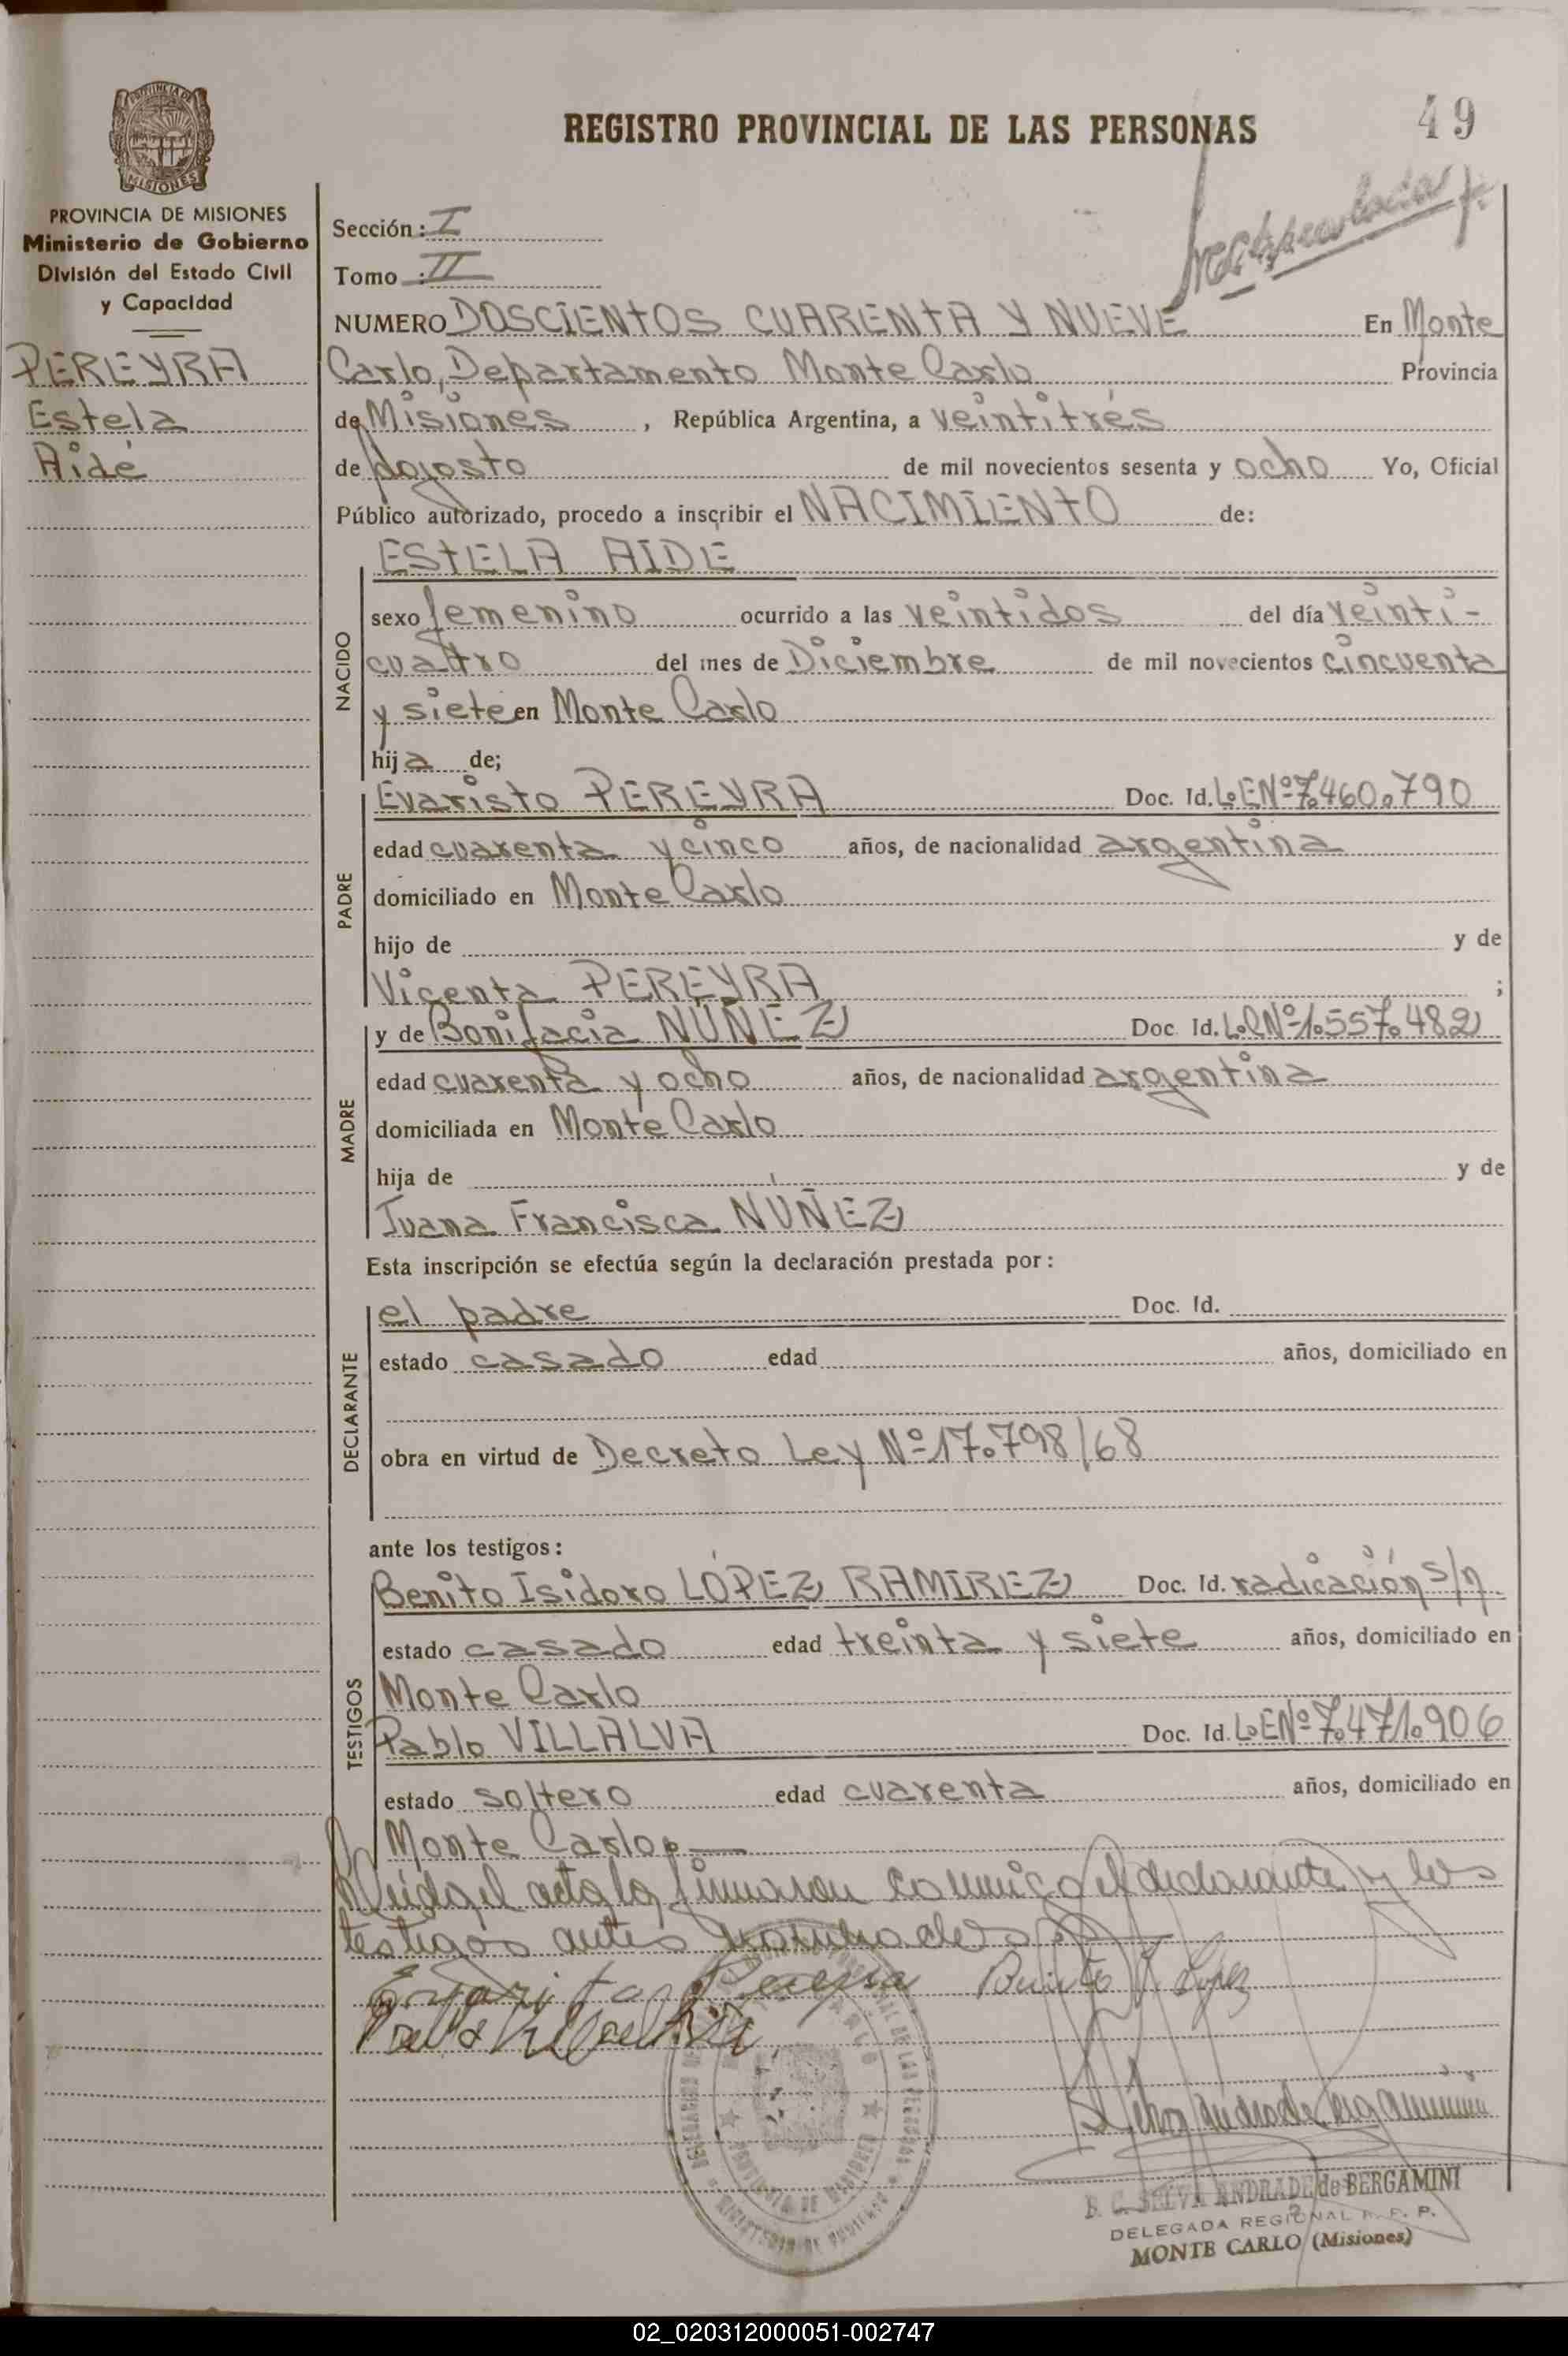 REGISTRO PROVINCIAL DE LAS PERSONAS
49
PROVINCIA DE MISIONES
Ministerio de Gobierno
División del Estado Civil
y Capacidad
PEREYRA
Estela
Aidé
Sección: I
Tomo : II
NUMERO DOSCIENTOS CUARENTA Y NUEVE En Monte
Carlo, Departamento Monte Carlo Provincia
de Misiones, República Argentina, a veintitrés
de agosto de mil novecientos sesenta y ocho Yo, Oficial
Público autorizado, procedo a inscribir el NACIMIENTO de:
NACIDO
ESTELA AIDE
sexo femenino ocurrido a las veintidos del día veinti-
cuatro del mes de Diciembre de mil novecientos cincuenta
y siete en Monte Carlo
hija de;
PADRE
Evaristo PEREYRA Doc. Id. L.E.Nº 7.460.790
edad cuarenta y cinco años, de nacionalidad argentina
domiciliado en Monte Carlo
hijo de y de
Vicenta PEREYRA ;
MADRE
y de Bonifacia NUÑEZ Doc. Id. L.C.Nº 1.557.482
edad cuarenta y ocho años, de nacionalidad argentina
domiciliada en Monte Carlo
hija de y de
Juana Francisca NUÑEZ
Esta inscripción se efectúa según la declaración prestada por:
DECLARANTE
el padre Doc. Id.
estado casado edad años, domiciliado en
obra en virtud de Decreto Ley Nº 17.798/68
ante los testigos:
TESTIGOS
Benito Isidoro LÓPEZ RAMIREZ Doc. Id. radicación s/n
estado casado edad treinta y siete años, domiciliado en
Monte Carlo
Pablo VILLALVA Doc. Id. L.E.Nº 7.471.906
estado soltero edad cuarenta años, domiciliado en
Monte Carlo.—
Leida el acta la firmaron conmigo el declarante y los
testigos antes nombrados
Evaristo Pereyra Benito I. Lopez
Pablo Villalva
Selva Andrade de Bergamini
B. C. SELVA ANDRADE de BERGAMINI
DELEGADA REGIONAL R. P. P.
MONTE CARLO (Misiones)
PROVINCIA DE MISIONES
MINISTERIO DE GOBIERNO
02_020312000051-002747